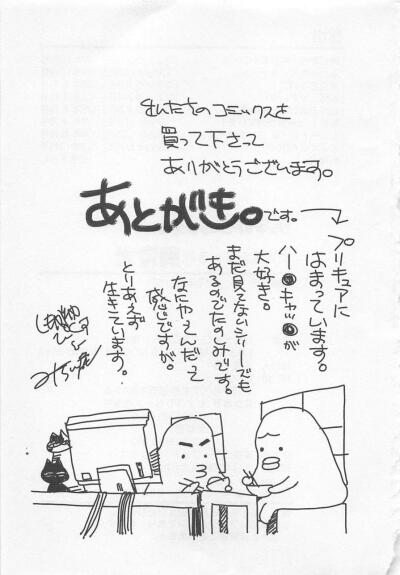 私たちのコミックスを
買って下さって
ありがとうございます。
あとがき。です。
プリキュアに
はまっています。
ハー●キャッ●が
大好き。
まだ見てないシリーズも
あるのでたのしみです。
なにやってんだって
感じですが。
とりあえず
生きています。